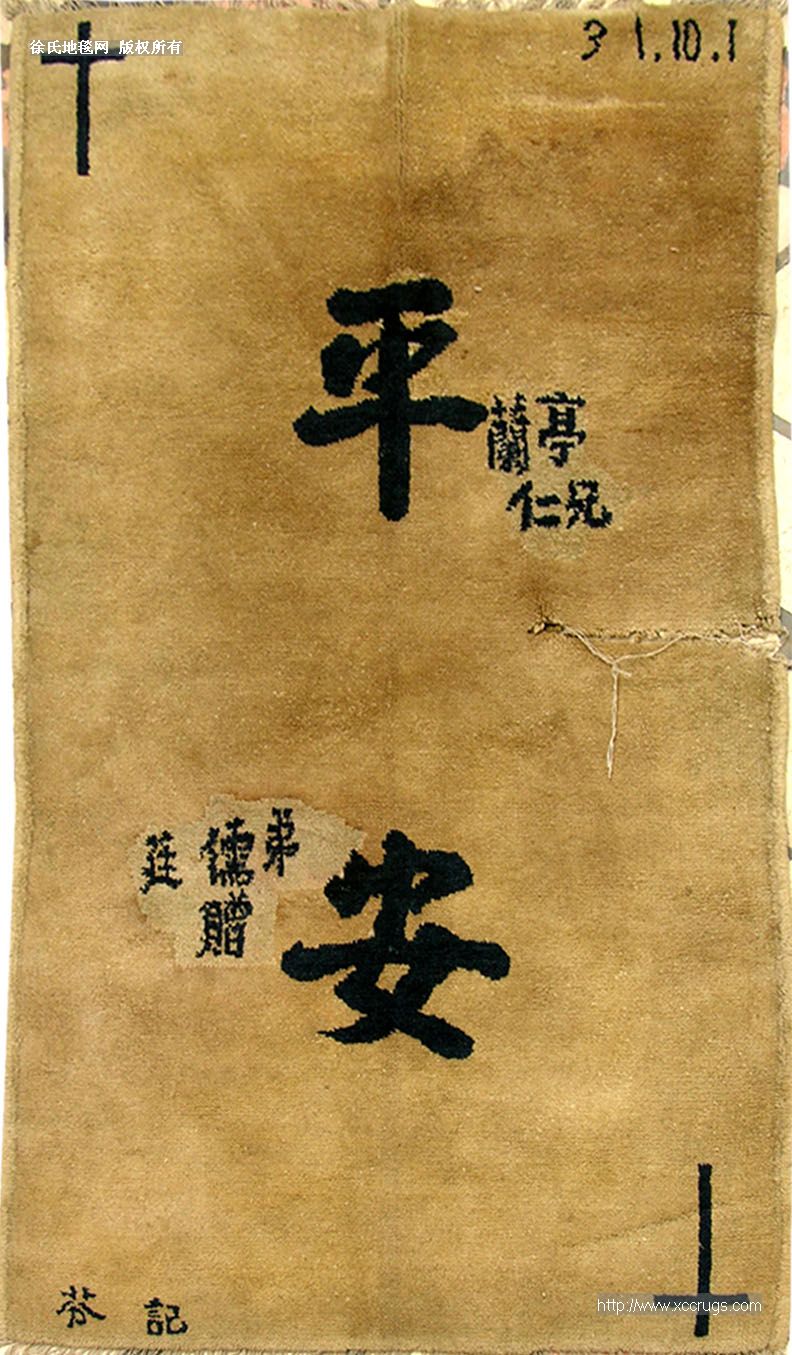 徐氏地毯网 版权所有
31.10.1
平
蘭亭
仁兄
弟
儒
贈
安
芬 記
http://www.xccrugs.com